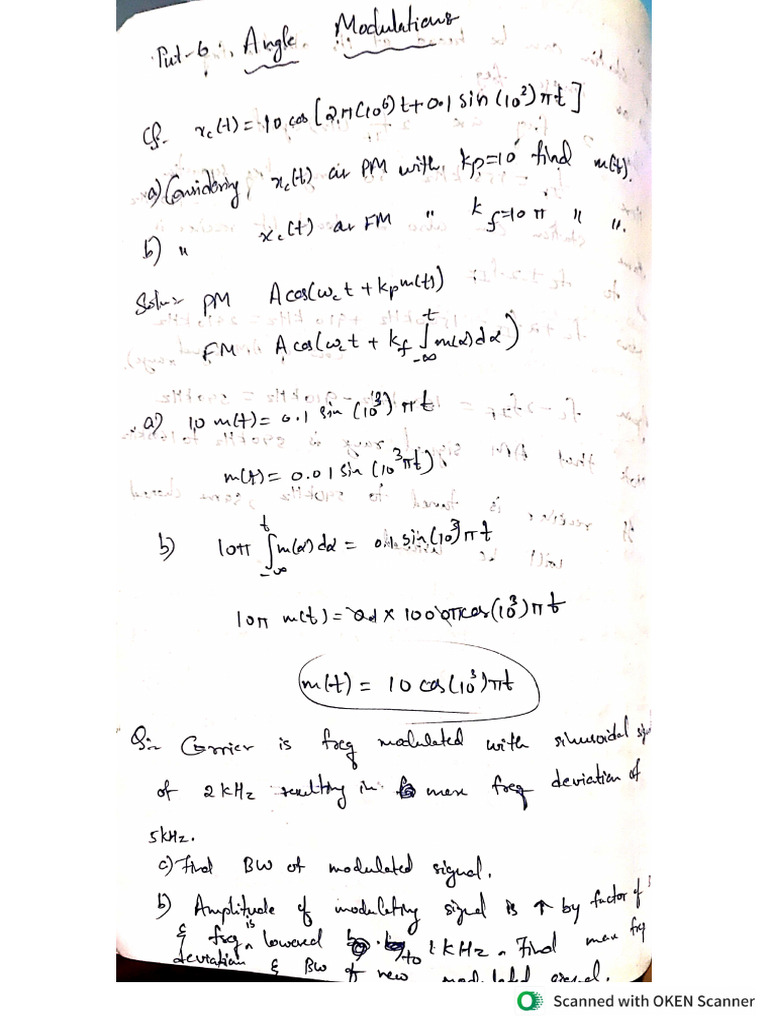 Put-6: Angle Modulations
Q:- x_c(t) = 10 cos [2π(10⁶)t + 0.1 sin (10²)πt]
a) Considering, x_c(t) as PM with, kp=10 find m(t).
b) " x_c(t) as FM " k_f=10π " ".
Soln:- PM A cos(ω_c t + kp m(t))
FM. A cos(ω_c t + k_f ∫_{-∞}^{t} m(α)dα)
a) 10 m(t) = 0.1 sin (10³) πt
m(t) = 0.01 sin (10³πt)
b) 10π ∫_{-∞}^{t} m(α) dα = 0.1 sin(10³)πt
10π m(t) = 0.1 × 1000π cos(10³)πt
m(t) = 10 cos(10³)πt
Q:- Carrier is freq modulated with sinusoidal
of 2 kHz resulting in max freq deviation of
5kHz.
c) Find BW of modulated signal.
b) Amplitude of modulating signal is ↑ by factor of
& freq is lowered to 1 kHz. Find max frq
deviation & BW of new
Scanned with OKEN Scanner